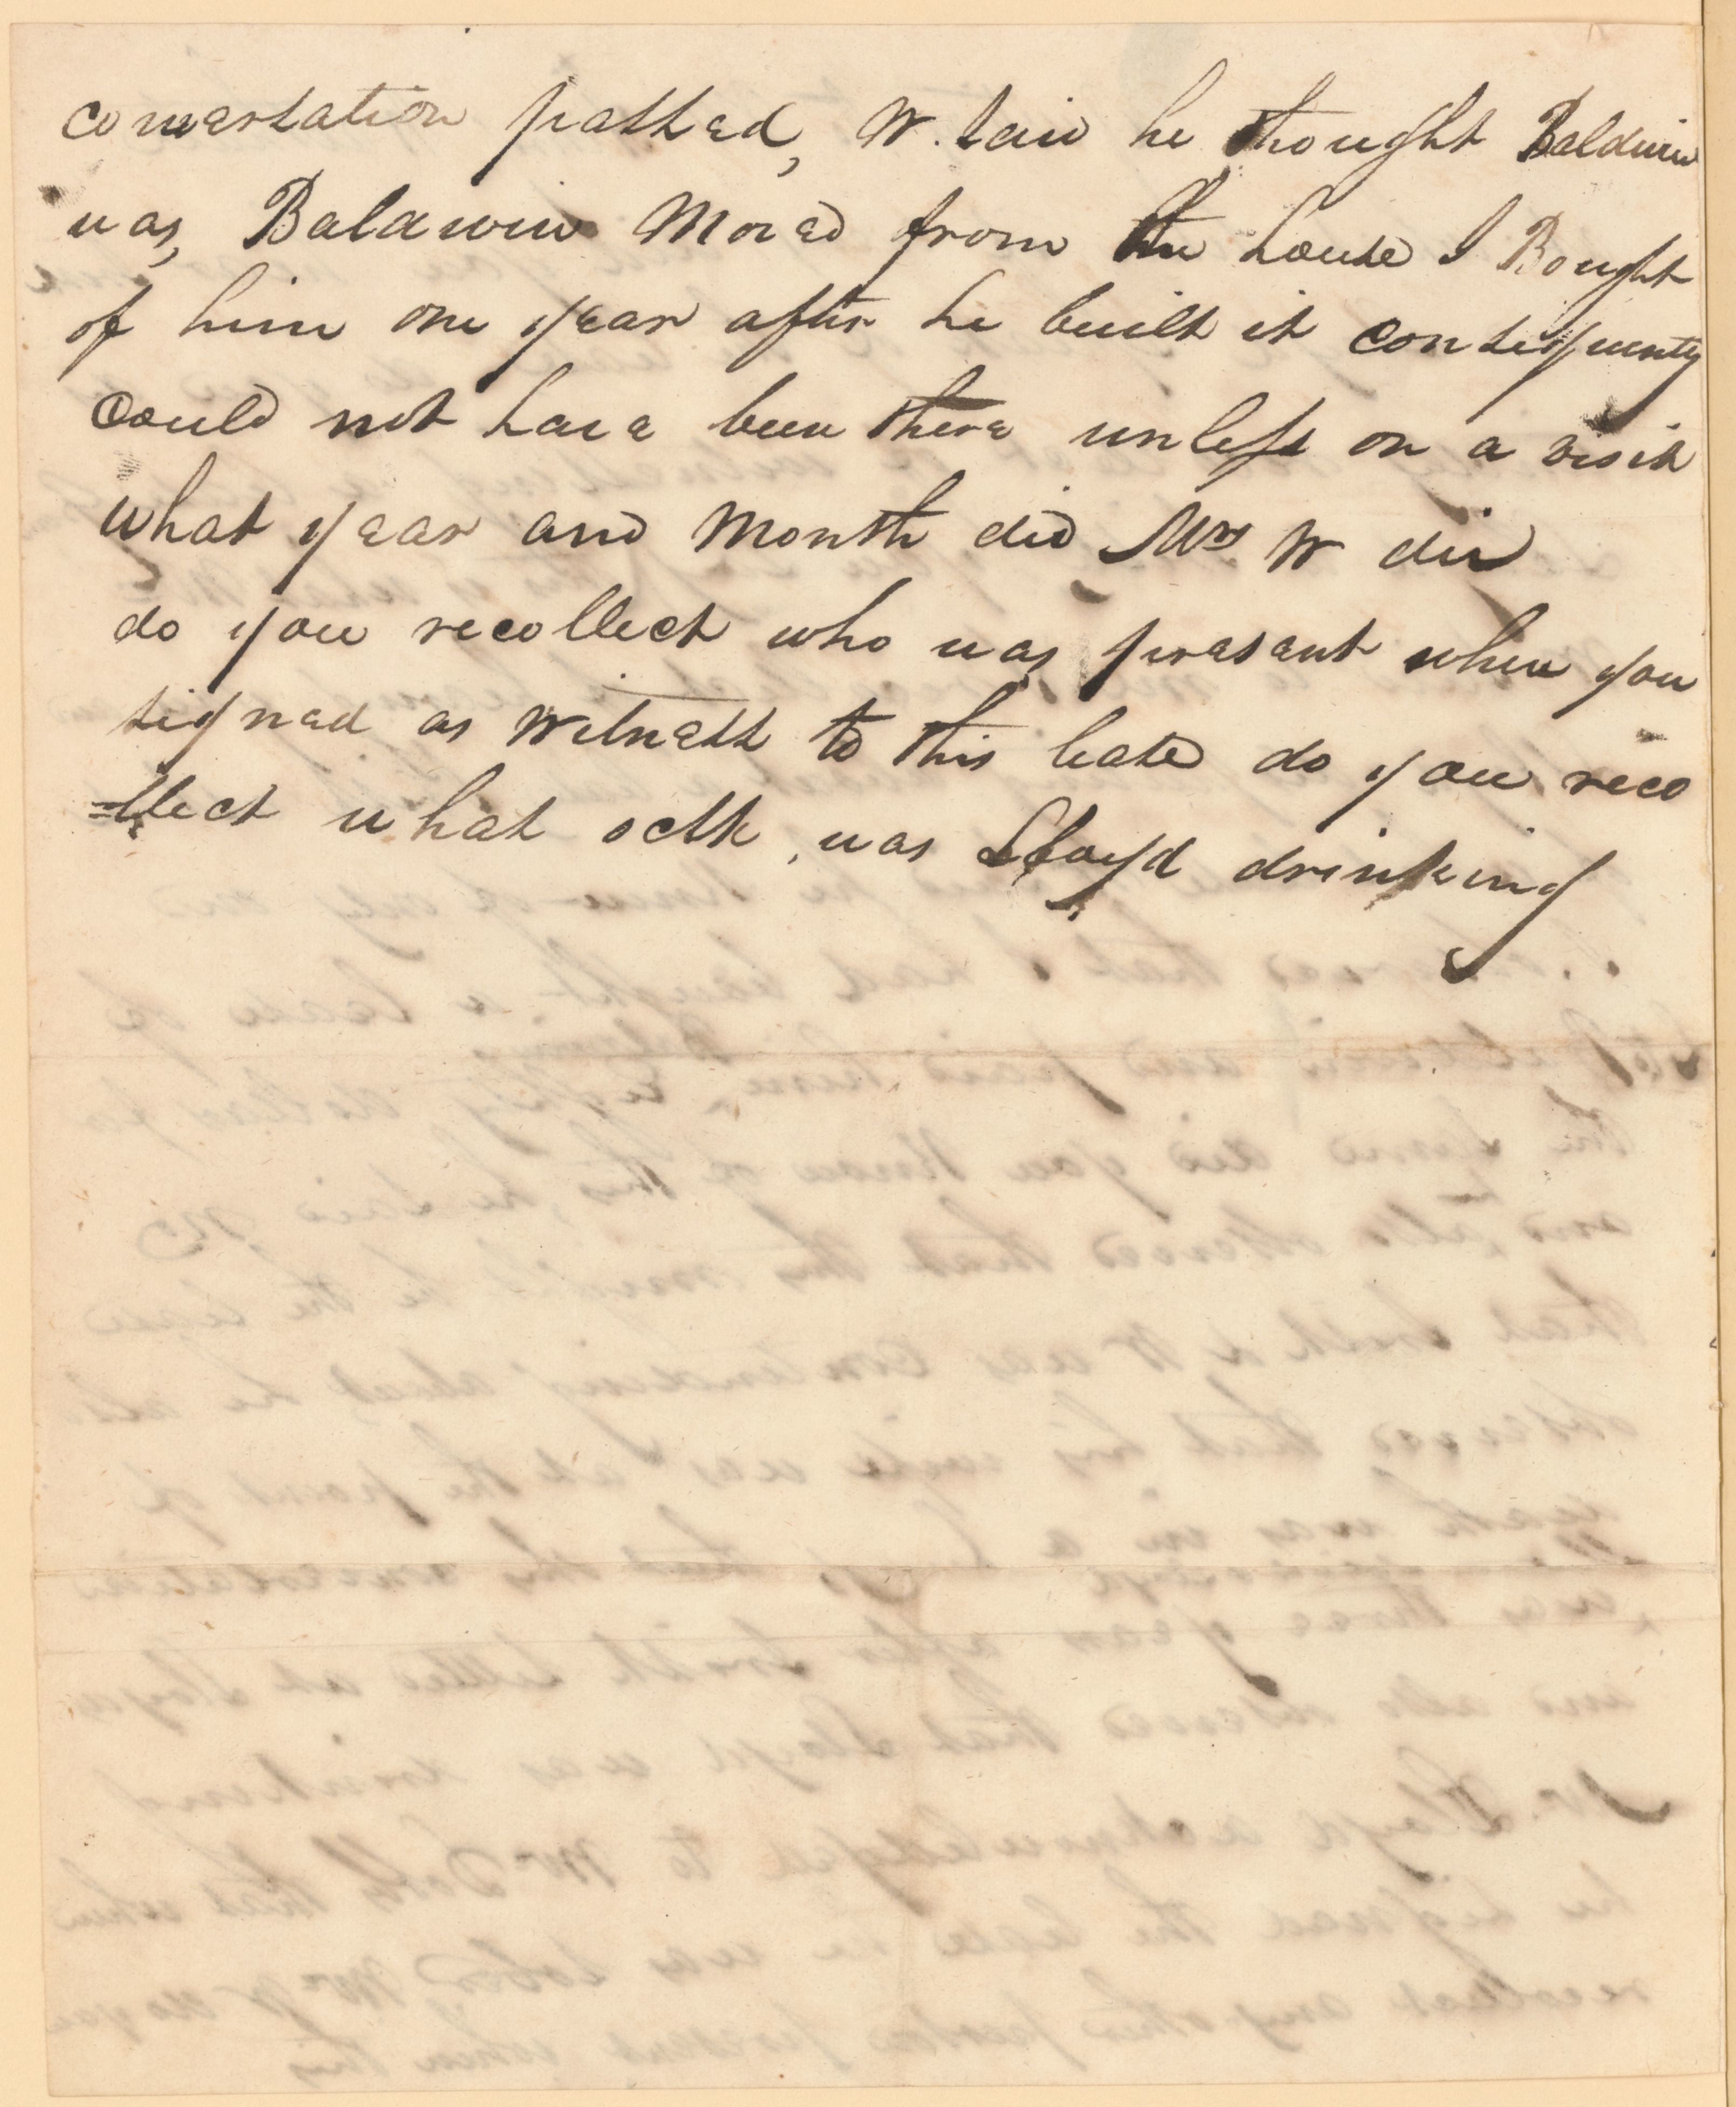 conversation passed, W. said he thought Baldwin
was, Baldwin Moved from the house I Bought
of him one year after he built it consequently
could not have been there unless on a visit
what year and Month did Mrs W die
do you recollect who was presant when you
signed as Witness to this lease do you reco
=llect what was Lloyd drinking